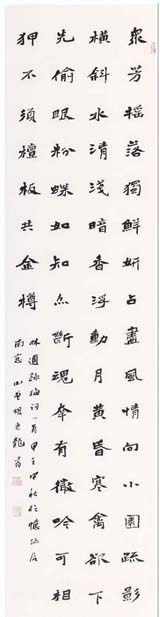 衆芳摇落獨鮮妍占盡風情向小園疏影
橫斜水清淺暗香浮動月黃昏寒禽欲下
先偷眼粉蝶如知合斷魂幸有微吟可相
狎不須檀板共金樽
林逋詠梅詞一首甲午中秋於